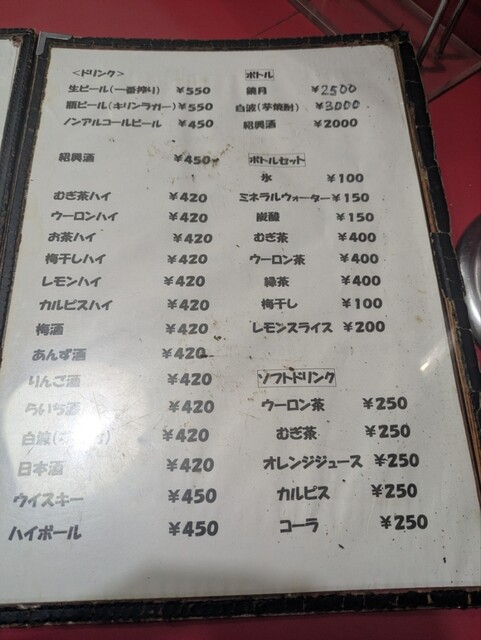 <ドリンク>
生ビール(一番搾り) ¥550
瓶ビール(キリンラガー) ¥550
ノンアルコールビール ¥450
紹興酒 ¥450
むぎ茶ハイ ¥420
ウーロンハイ ¥420
お茶ハイ ¥420
梅干しハイ ¥420
レモンハイ ¥420
カルピスハイ ¥420
梅酒 ¥420
あんず酒 ¥420
りんご酒 ¥420
らいち酒 ¥420
白波( ¥420
日本酒 ¥420
ウイスキー ¥450
ハイボール ¥450
ボトル
鏡月 ¥2500
白波(芋焼酎) ¥3000
紹興酒 ¥2000
ボトルセット
氷 ¥100
ミネラルウォーター ¥150
炭酸 ¥150
むぎ茶 ¥400
ウーロン茶 ¥400
緑茶 ¥400
梅干し ¥100
レモンスライス ¥200
ソフトドリンク
ウーロン茶 ¥250
むぎ茶 ¥250
オレンジジュース ¥250
カルピス ¥250
コーラ ¥250